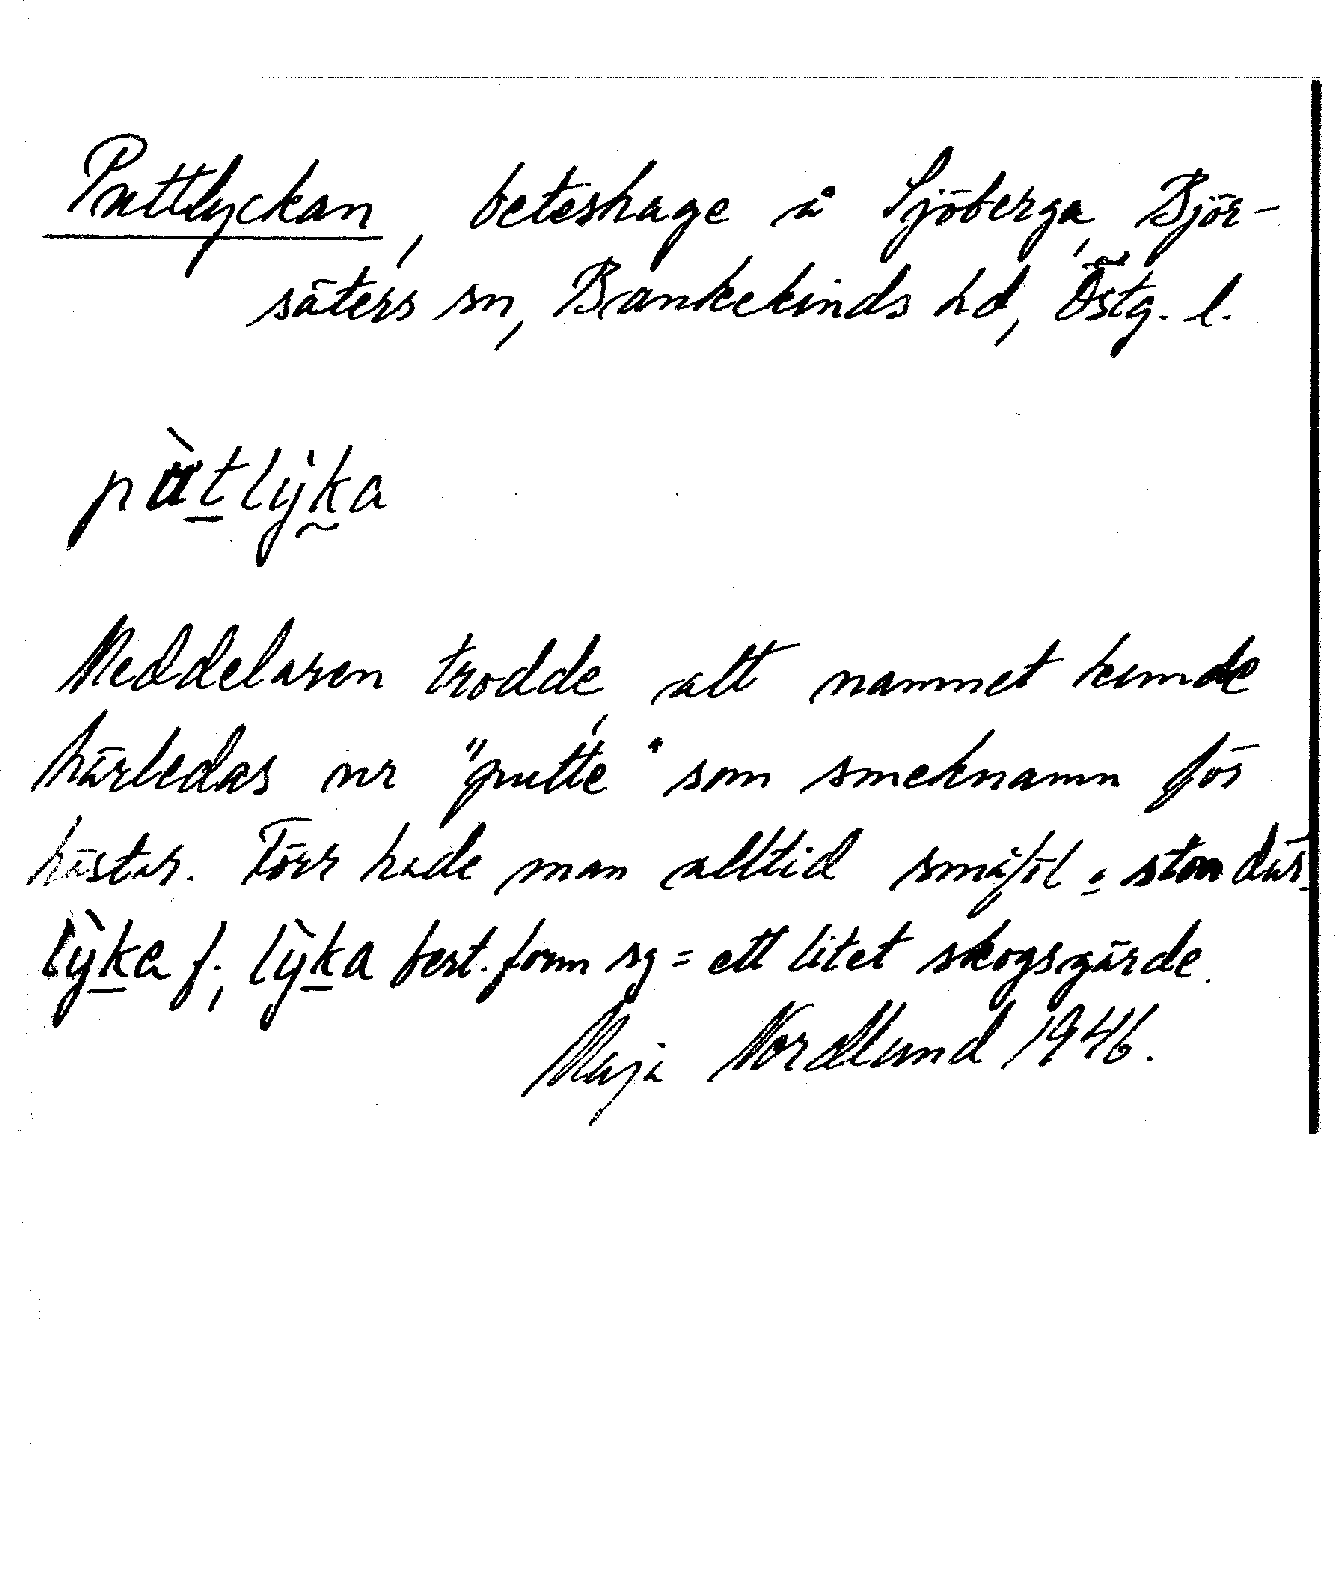 Puttlyckan, beteshage å Sjöberga, Björ-
säters sn, Bankekinds hd, Östg. l.
pùtlỳka
Meddelaren trodde, att namnet kunde
härledas ur "putte" som smeknamn för
hästar. Förr hade man alltid småföl o. ston där.
lỳka f., lỳka best. form sg = ett litet skogsgärde.
Maja Nordlund 1946.